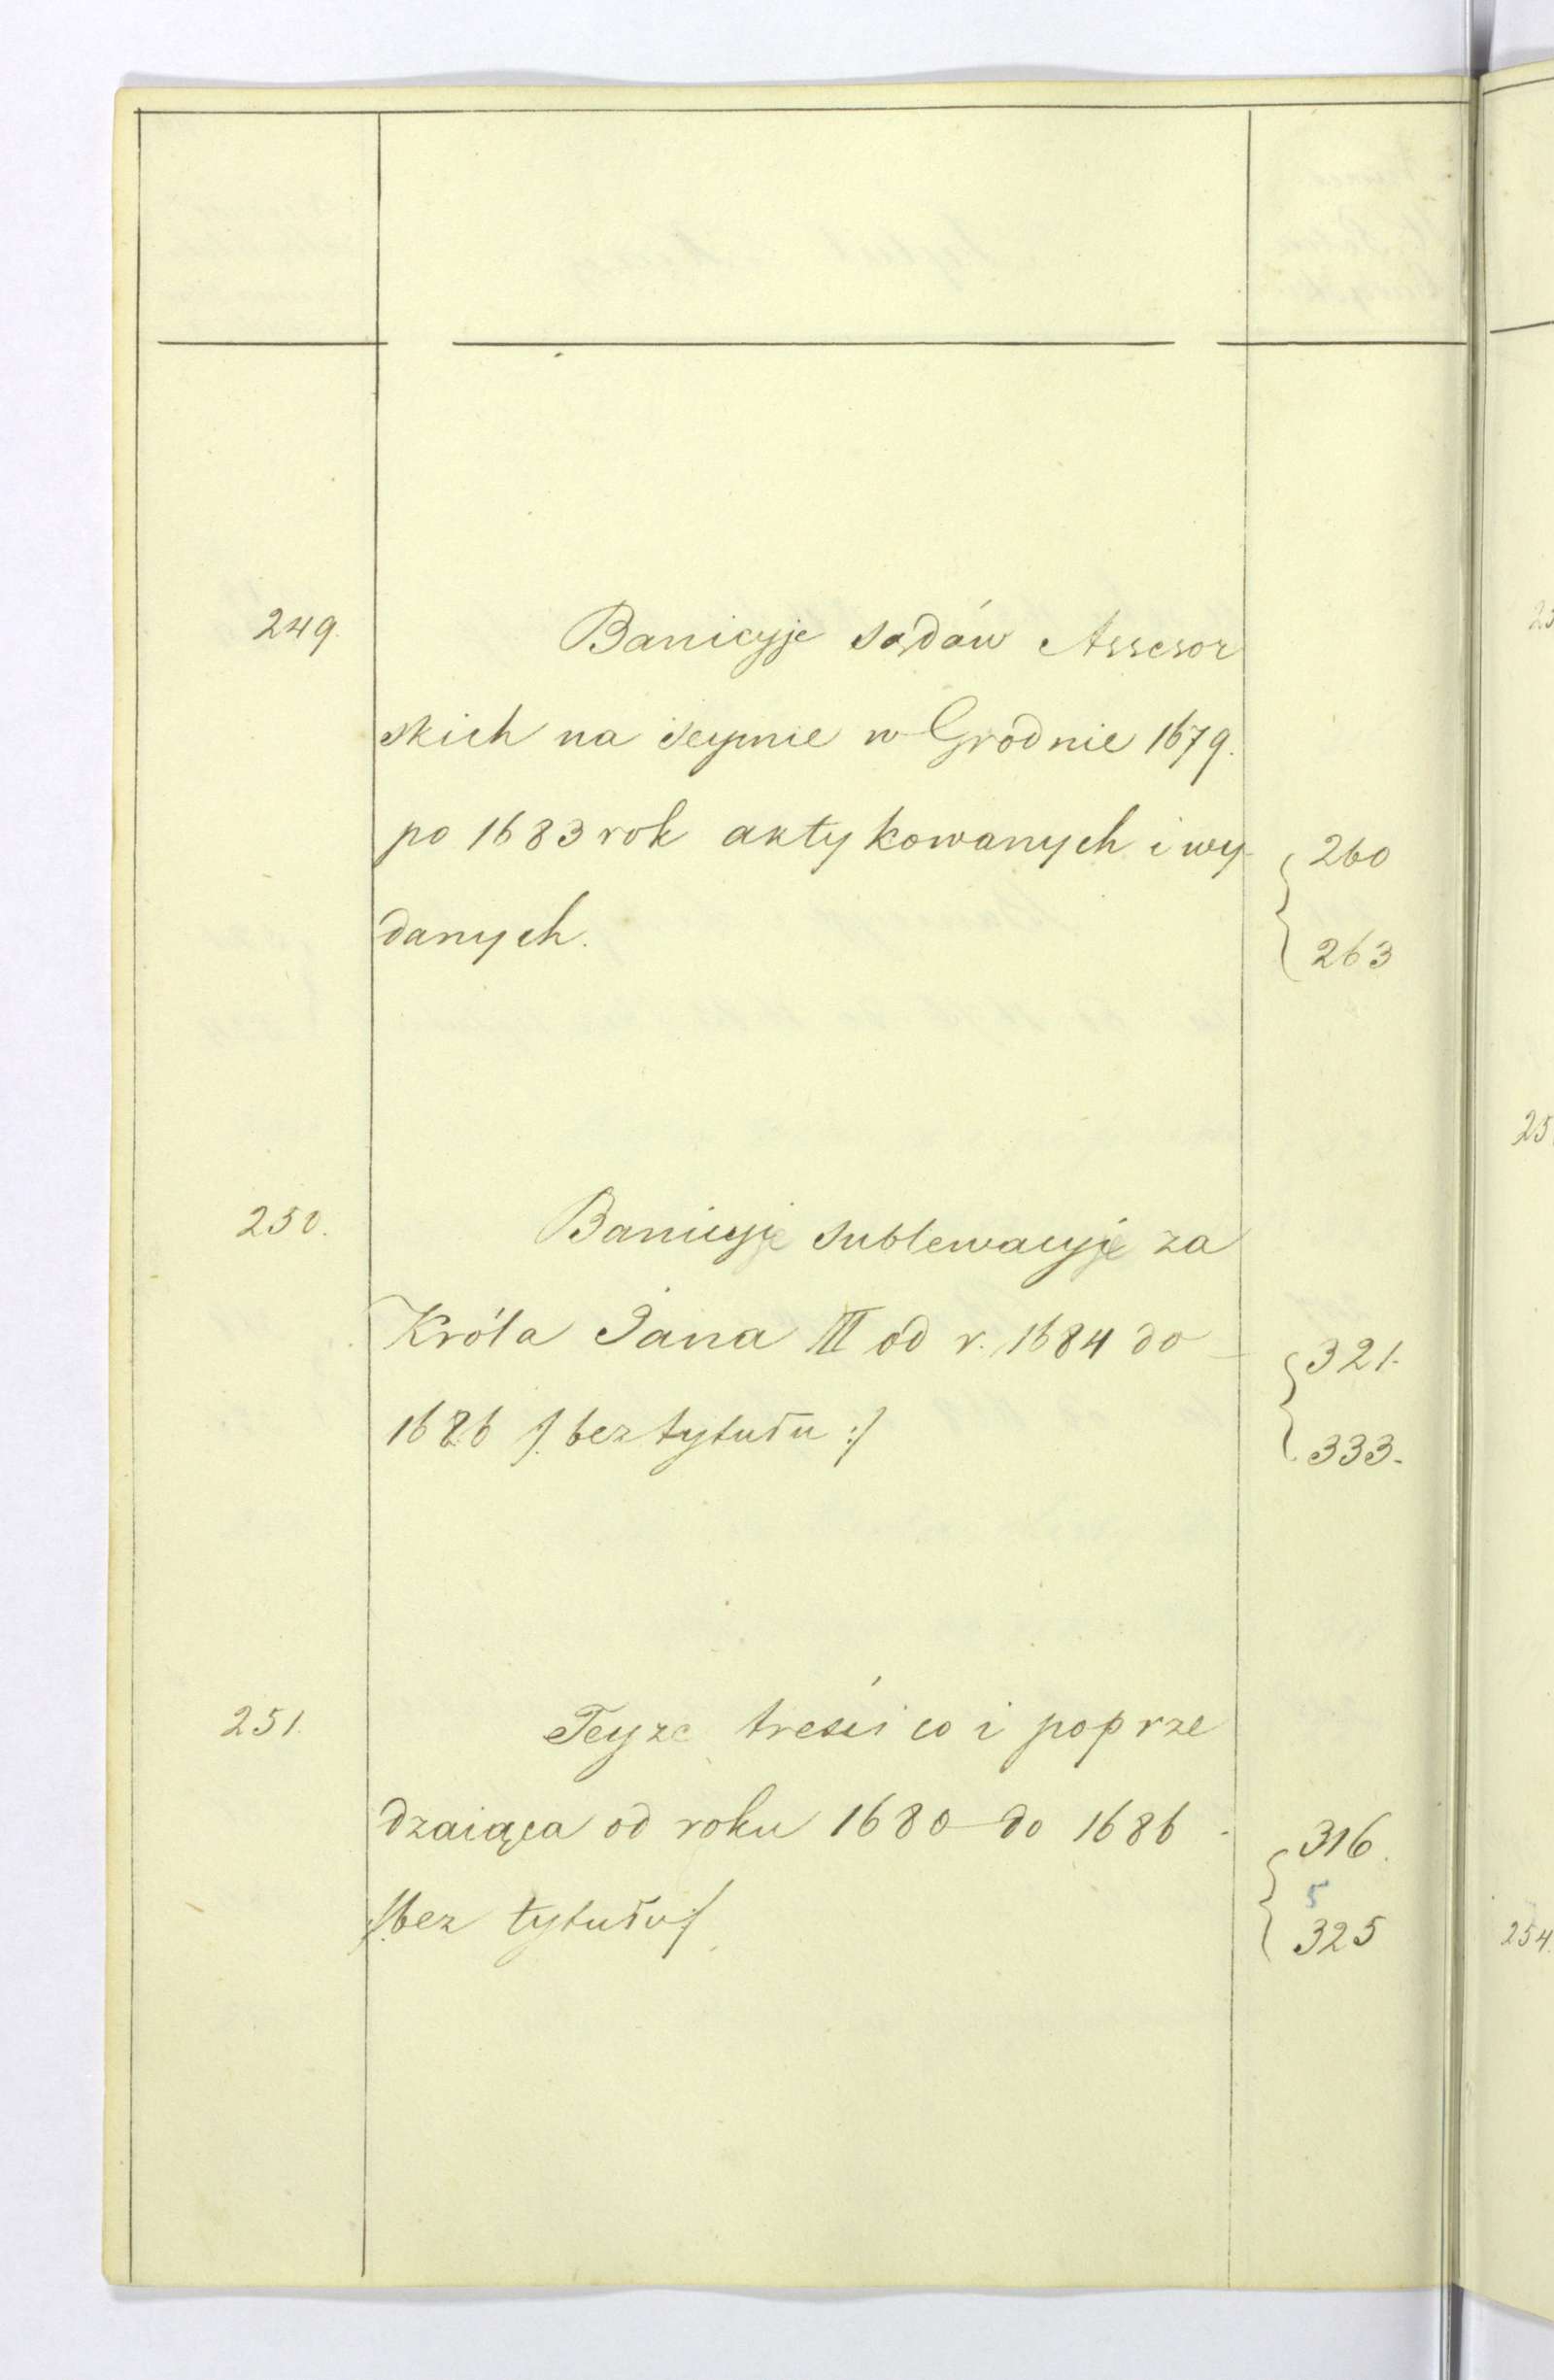 249. Banicyje sądów Assesor
skich na Seymie w Grodnie 1679.
po 1683 rok aktykowanych i wy- 260
danych. 263
250. Banicyje sublewacyje za
Króla Jana III od r. 1684 do 321.
1686 /: bez tytułu :/ 333.
251. Teyże treści co i poprze
dzaiąca od roku 1680 do 1686 316.
5
/: bez tytułu :/ 325
254.